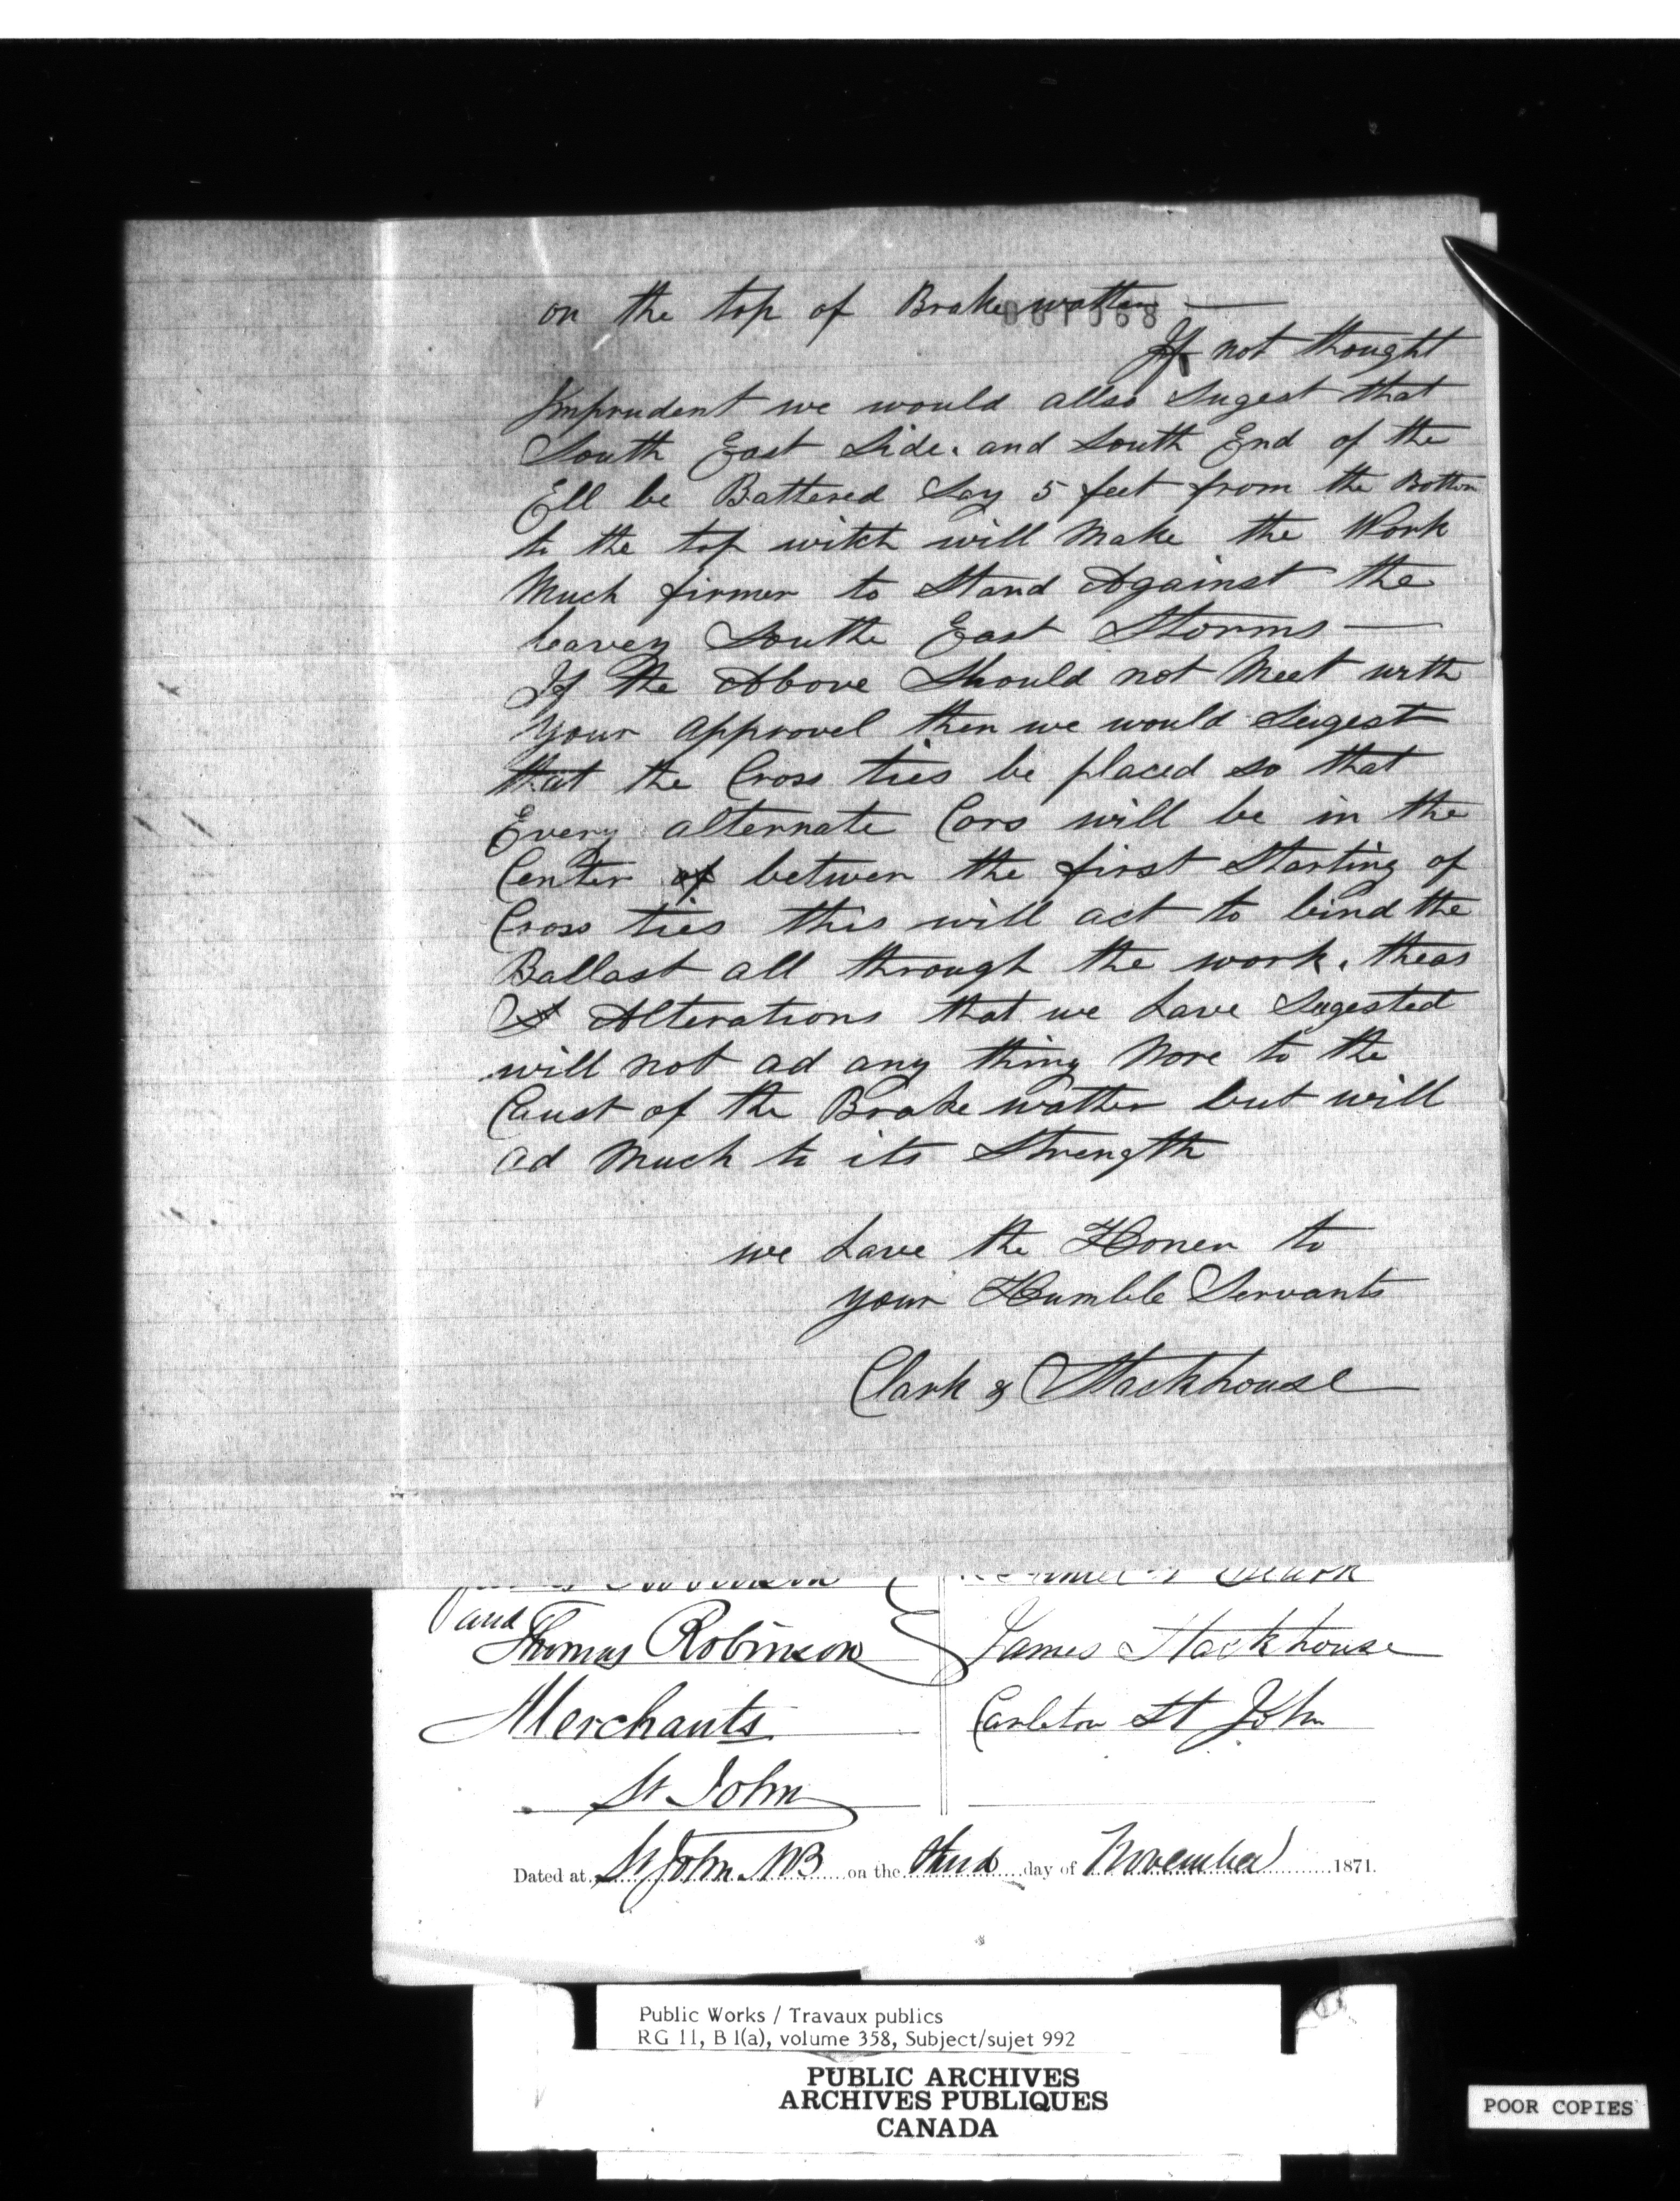 on the top of Brake watter —
If not thought
Imprudent we would allso Sugest that
South East Side. and South End of the
Ell be Battered Say 5 feet from the Bottom
to the top witch will Make the Work
Much firmer to Stand Against the
heavey Southe East Storms —
If the Above Should not Meet with
your approvel then we would Sugest
that the Cross ties be placed so that
Every alternate Cors will be in the
Center of between the first Starting of
Cross ties this will act to bind the
Ballast all through the work. theas
Alterations that we have Sugested
will not ad any thing More to the
Cust of the Brake watter but will
ad Much to its Strength
we have the Honer to
your Humble Servants
Clark & Stackhouse
and Thomas Robinson
Merchants
St John
Clark
James Stackhouse
Carleton St John
Dated at St John NB on the third day of November 1871.
Public Works / Travaux publics
RG 11, B 1(a), volume 358, Subject/sujet 992
PUBLIC ARCHIVES
ARCHIVES PUBLIQUES
CANADA
POOR COPIES